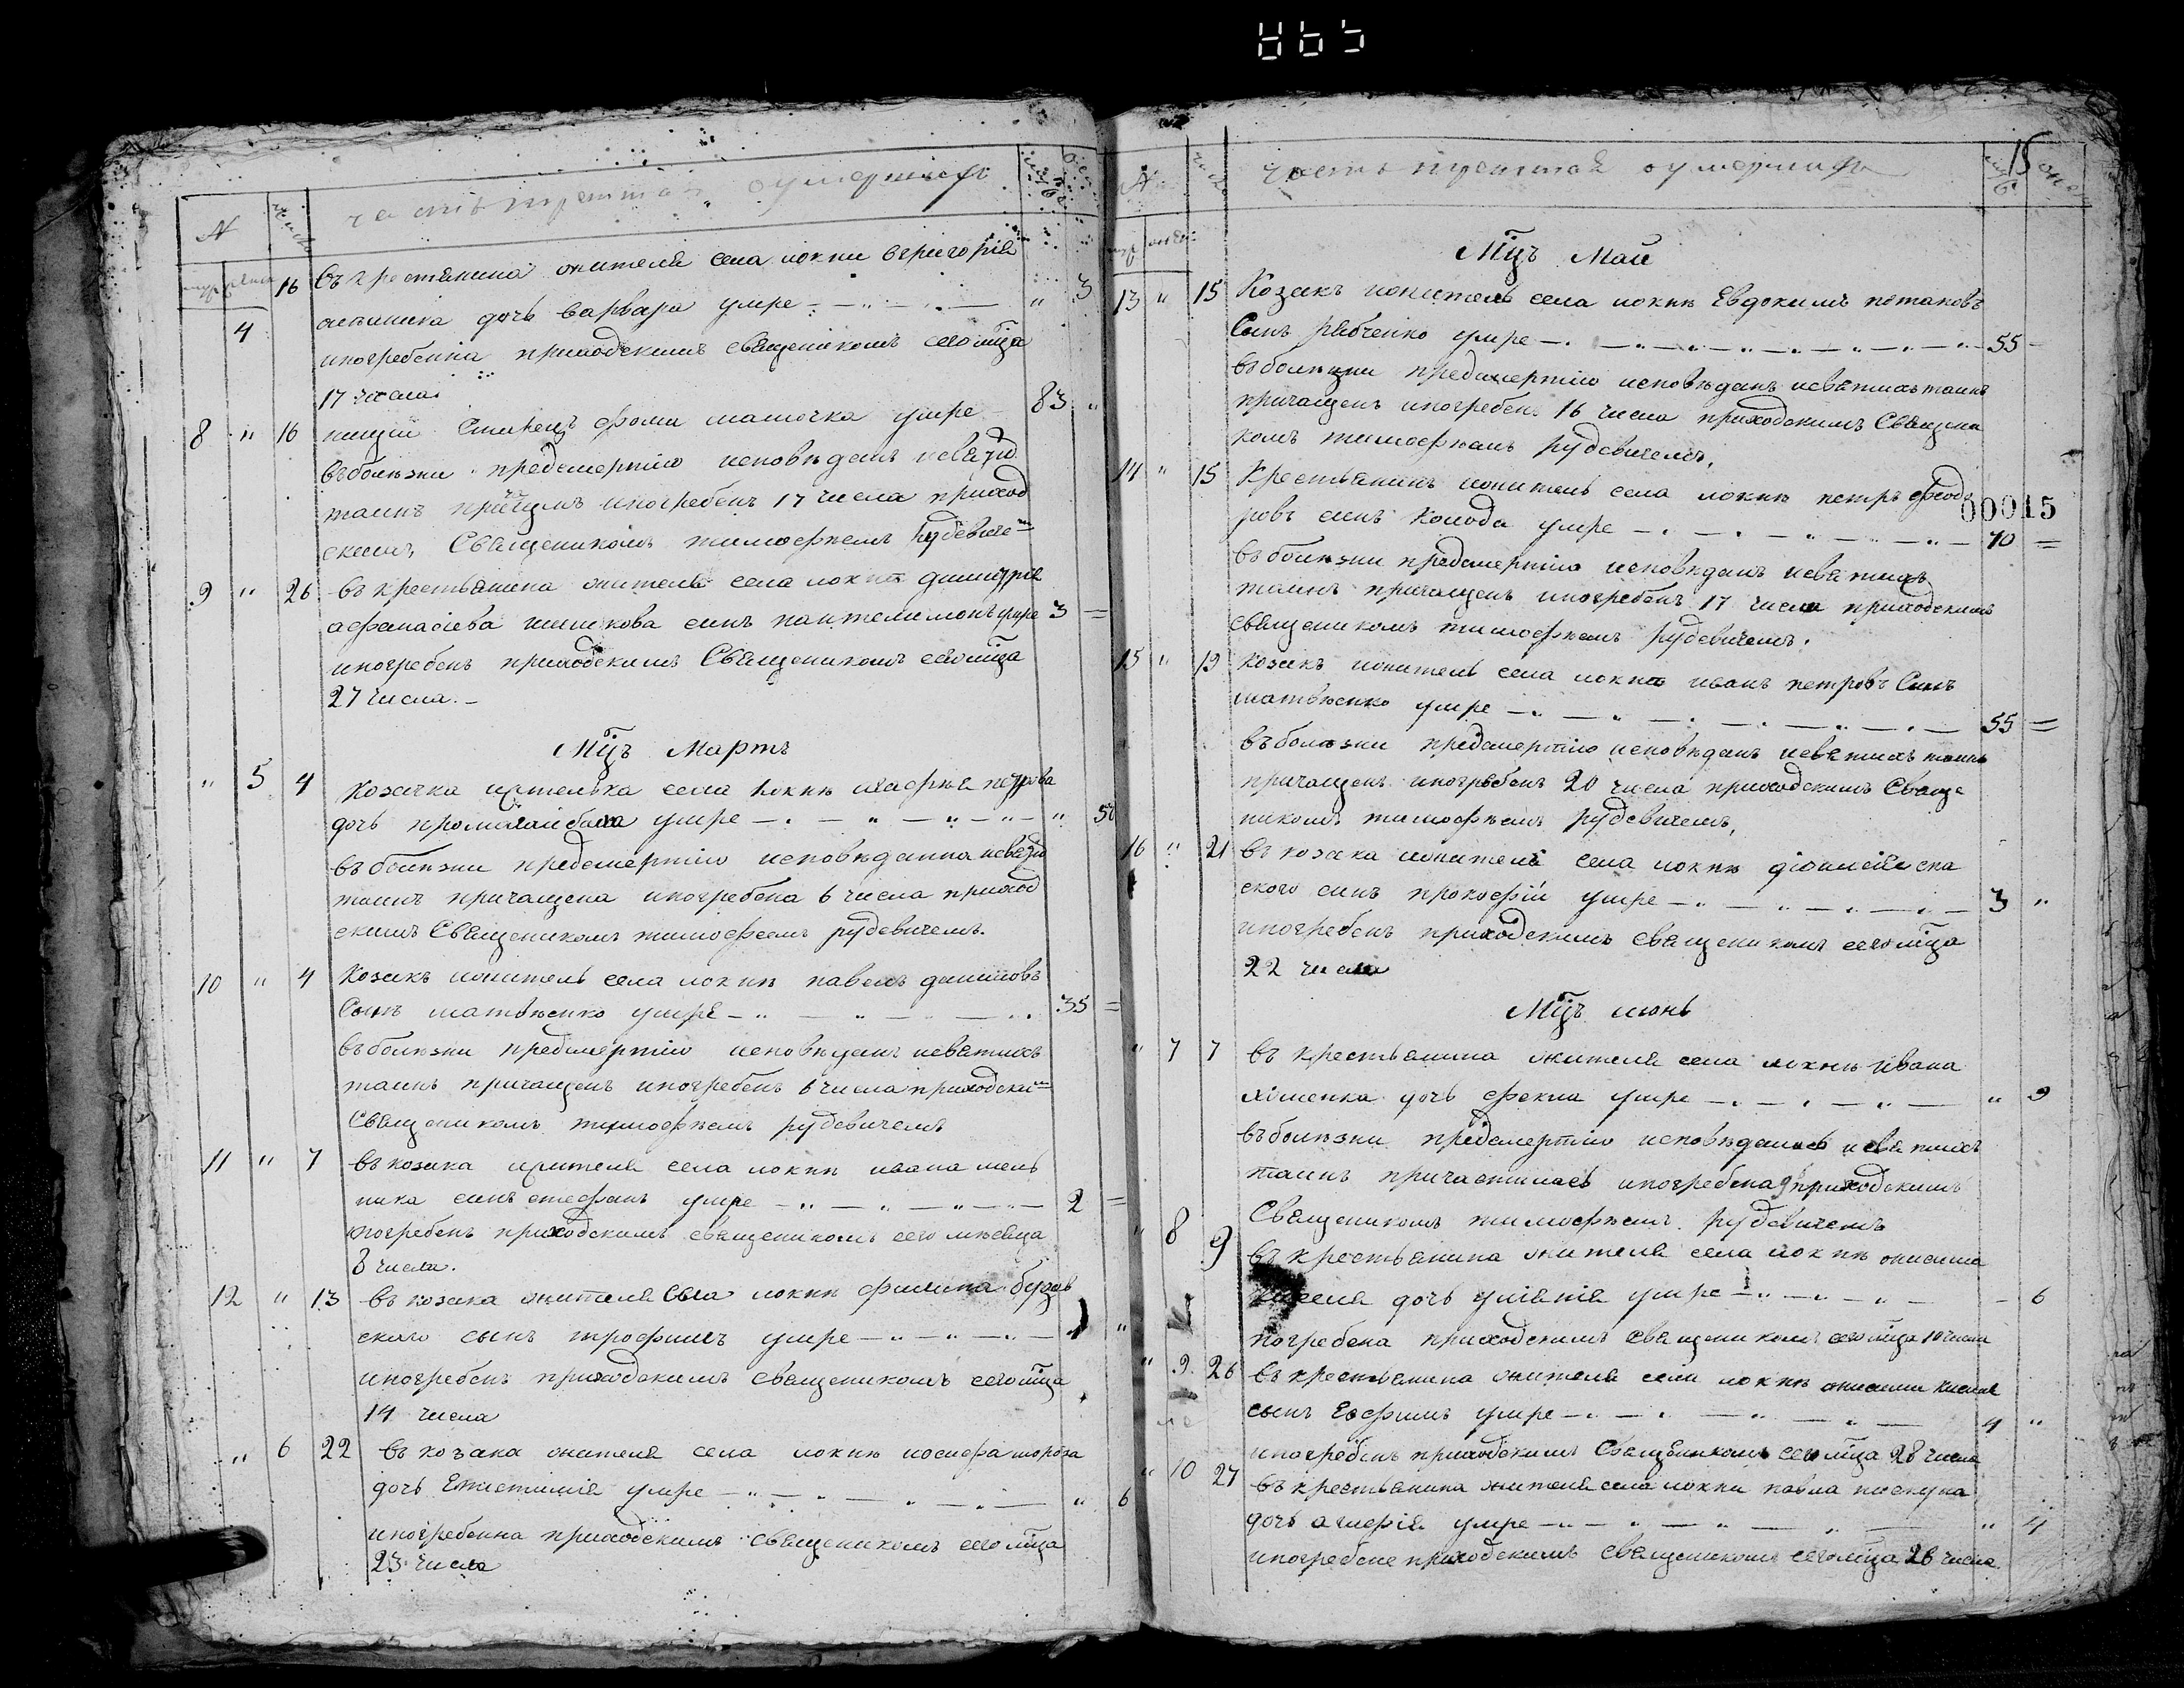 часть треттая оумершихъ
№
число
муж женск
4 16 въ крестянина жителя села локни григорія
дочь варвара умре " 3
ипогребенна приходскимъ священикомъ сего мца
17 числа
8 " 16 нищій фома умре 83 "
въболѣзни предсмертію исповѣданъ исвятих
таинъ причащенъ ипогребенъ 17 числа приход
скимъ Священикомъ тимофѣемъ Рудевиче
9 " 26 въ крестьянина жителя села локнѣ димитрія
афанасіева синъ пантелимонъ умре 3 =
ипогребенъ приходскимъ Священикомъ сего мца
27 числа. –
Мцъ Мартъ
" 5 4 Козачка жителька села локнѣ агафия петрова
дочь умре " 50
въболѣзни предсмертію исповѣданна исвятих
таинъ причащена ипогребена 6 числа приход
скимъ Священикомъ тимофеемъ рудевичемъ.
10 " 4 Козакъ ижитель села локнѣ павелъ даниловъ
Сынъ матвѣенко умре 35 =
въболѣзни предсмертію исповѣданъ исвятихъ
таинъ причащенъ ипогребенъ 6 числа приходски
Священикомъ тимофѣемъ рудевичемъ
11 " 7 въ козака жителя села локнѣ ивана мель
ника синъ стефанъ умре 2 =
погребенъ приходскимъ священикомъ сего мѣсяца
8 числа.
12 " 13 въ козака жителя села локнѣ филипа
ского сынъ трофимъ умре 1 "
ипогребенъ приходскимъ священикомъ сего мца
14 числа
" 6 22 въ козака жителя села локнѣ иосифа мороза
дочь умре " 6
ипогребенна приходскимъ священикомъ сего мца
23 числа
15
№
число
часть треттая оумершихъ
муж женск
Мцъ Май
13 " 15 Козакъ ижитель села локнѣ Евдокимъ потаповъ
Сынъ рябченко умре 55 –
въболѣзни предсмертію исповѣданъ исвятихъ таинъ
причащенъ ипогребенъ 16 числа приходскимъ Священи
комъ тимофѣемъ рудевичемъ.
14 " 15 Крестьянинъ ижитель села локнѣ петръ феодо
ровъ синъ Колода умре 70 =
00015
въболѣзни предсмертію исповѣданъ исвятихъ
таинъ причащенъ ипогребенъ 17 числа приходскимъ
священикомъ тимофѣемъ рудевичемъ.
15 " 19 Козакъ ижитель села локнѣ иванъ петровъ Синъ
матвѣенко умре 55 =
въболѣзни предсмертію исповѣданъ исвятихъ таинъ
причащенъ ипогребенъ 20 числа приходскимъ Свяще
никомъ тимофѣемъ рудевичемъ.
16 " 21 въ козака ижителя села локнѣ
ского синъ прокофій умре 3 "
ипогребенъ приходскимъ священикомъ сего мца
22 числа
Мцъ июнь
" 7 7 въ крестьянина жителя села локнѣ Ивана
дочь фекла умре " 9
въболѣзни предсмертію исповѣдалась исвятихъ
таинъ причастилась ипогребена 9 приходскимъ
Священикомъ тимофѣемъ рудевичемъ
" 8 9 въ крестьянина жителя села локнѣ онисима
киселя дочь умре – 6
погребена приходскимъ священикомъ сего мца 10 числа
" 9 26 въ крестьянина жителя села локнѣ онисима киселя
сынъ Ефимъ умре 4 "
ипогребенъ приходскимъ Священикомъ сего мца 28 числа
" 10 27 въ крестьянина жителя села локни павла
дочь умре " 4
ипогребене приходскимъ священикомъ сего мца 28 числа